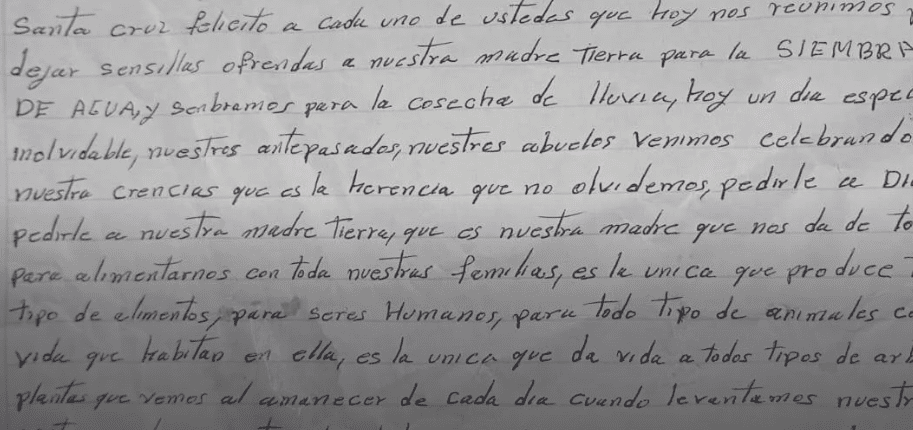 Santa cruz felicito a cada uno de ustedes que hoy nos reunimos
dejar sensillas ofrendas a nuestra madre Tierra para la SIEMBRA
DE AGUA, y senbramos para la cosecha de lluvia, hoy un dia
inolvidable, nuestros antepasados, nuestros abuelos venimos celebrando
nuestra crencias que es la herencia que no olvidemos, pedirle a
pedirle a nuestra madre Tierra, que es nuestra madre que nos da de
para alimentarnos con toda nuestras familias, es la unica que produce
tipo de alimentos, para seres Humanos, para todo Tipo de animales
vida que habitan en ella, es la unica que da vida a todos tipos de
plantas que vemos al amanecer de cada dia cuando levantamos